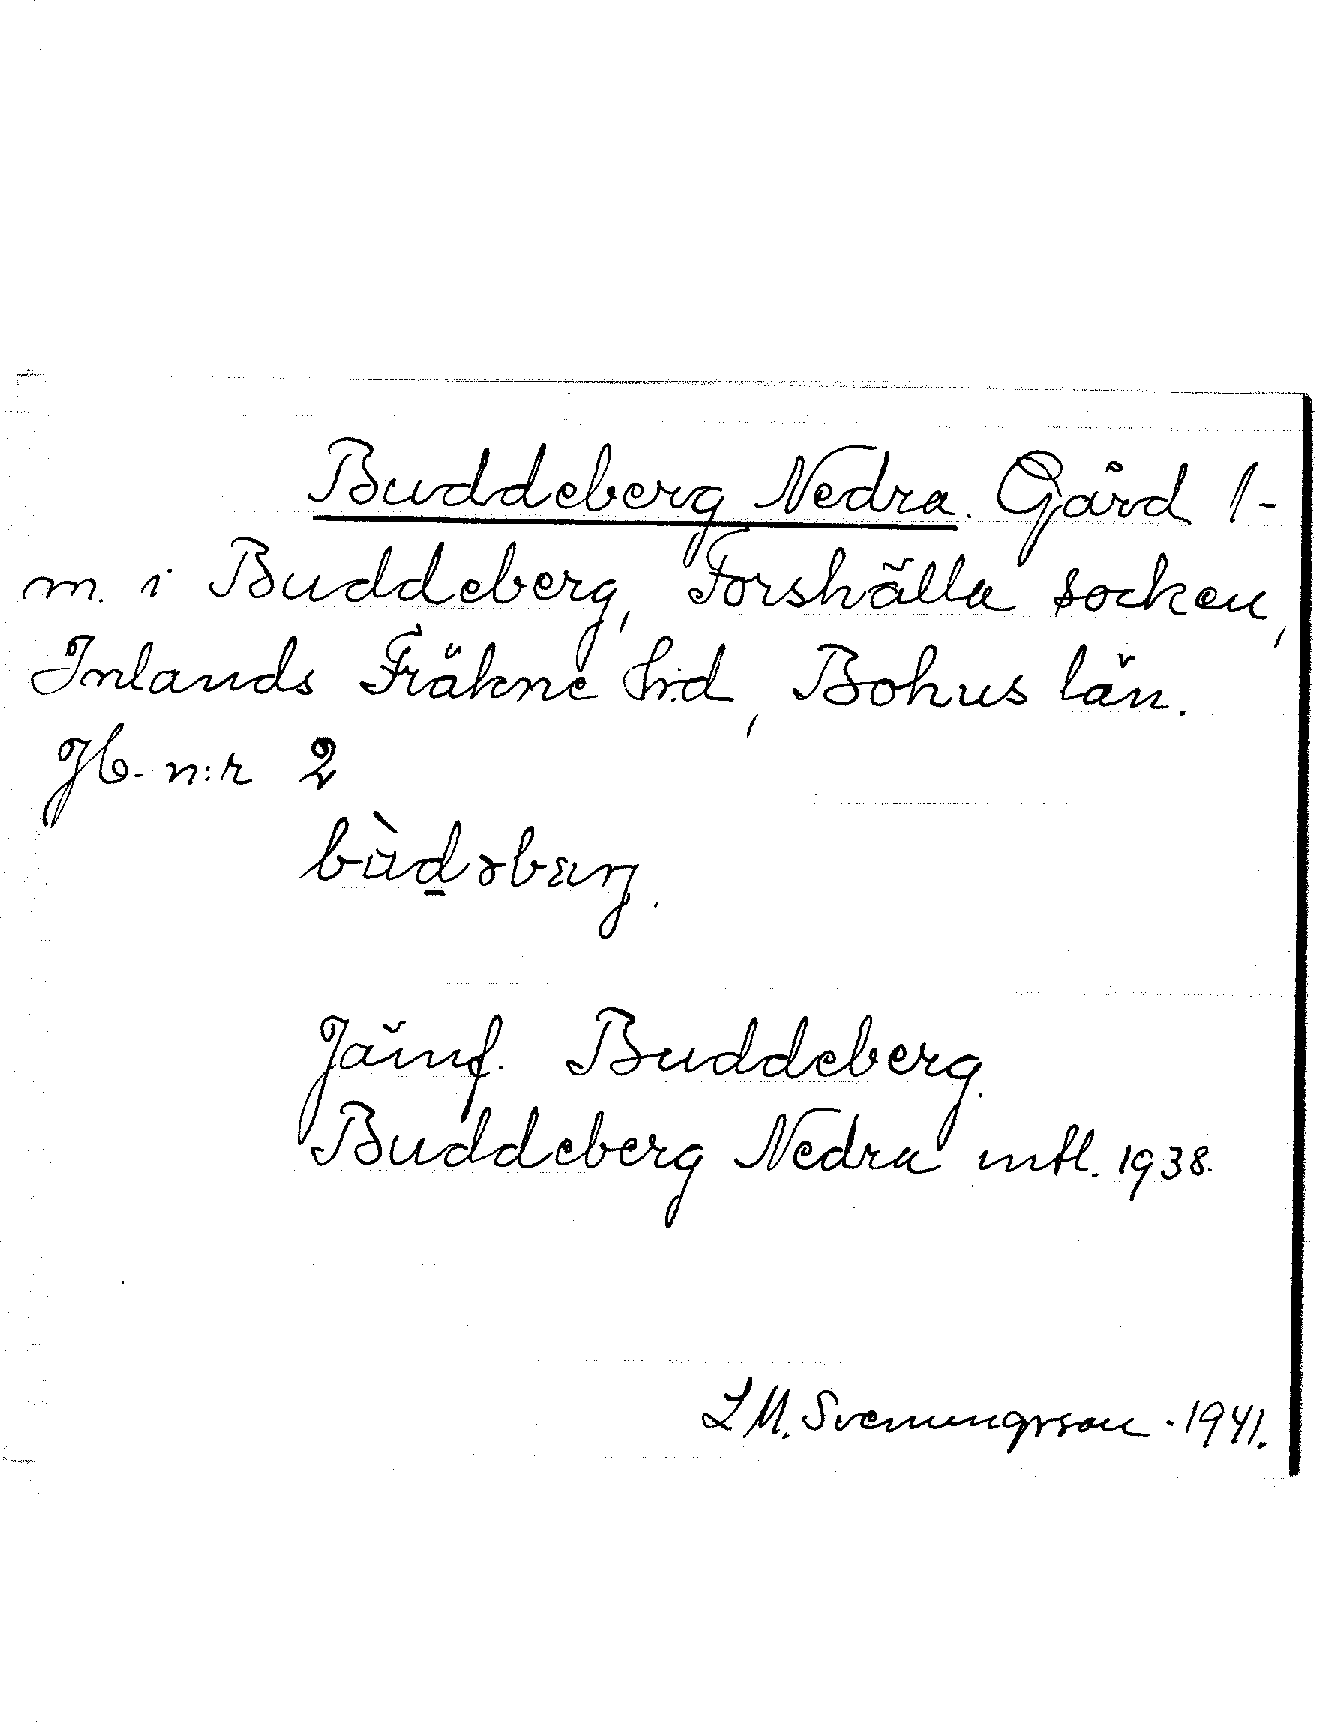 Buddeberg Nedra. Gård 1-
m. i Buddeberg, Forshälla socken,
Inlands Fräkne hrd, Bohus län.
Jb. n:r 2
bùd̲əbærg.
Jämf. Buddeberg.
Buddeberg Nedra mtl. 1938.
L M. Svenungsson - 1941.